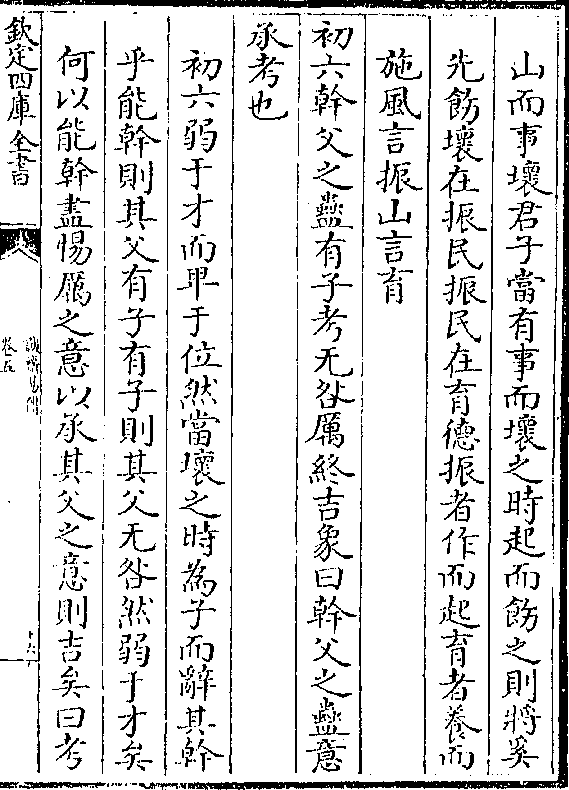 山而事壞君子當有事而壞之時起而飭之則將奚
先飭壞在振民振民在育德振者作而起育者養而
施風言振山言育
初六幹父之蠱有子考无咎厲終吉象曰幹父之蠱意
承考也
初六弱于才而卑于位然當壞之時為子而辭其幹
乎能幹則其父有子有子則其父无咎然弱于才矣
何以能幹盡惕厲之意以承其父之意則吉矣曰考
欽定四庫全書
卷五